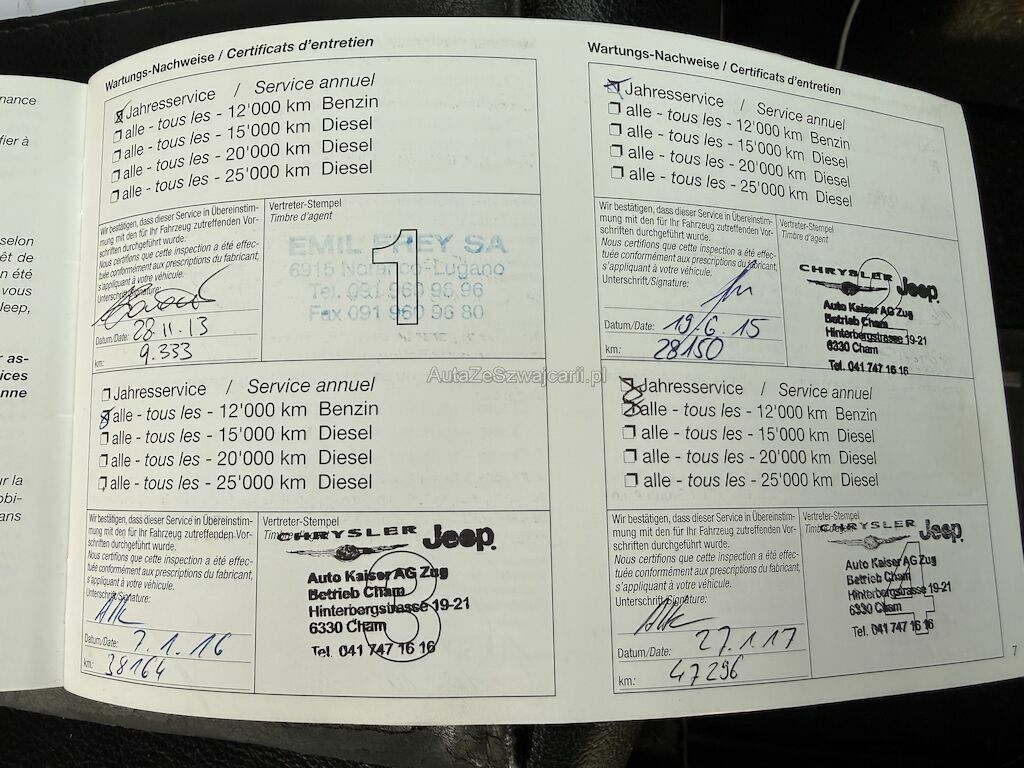 nance
fier à
selon
êt de
n été
vous
Jeep,
r as-
ices
nne
ur la
obi-
ans
Wartungs-Nachweise / Certificats d'entretien
Jahresservice / Service annuel
alle - tous les - 12'000 km Benzin
alle - tous les - 15'000 km Diesel
alle - tous les - 20'000 km Diesel
alle - tous les - 25'000 km Diesel
Wir bestätigen, dass dieser Service in Übereinstim-
mung mit den für Ihr Fahrzeug zutreffenden Vor-
schriften durchgeführt wurde.
Nous certifions que cette inspection a été effec-
tuée conformément aux prescriptions du fabricant,
s'appliquant à votre véhicule.
Unterschrift/Signature:
Datum/Date: 28.11.13
km: 9.333
Vertreter-Stempel
Timbre d'agent
1
EMIL FREY SA
6915 Noranco-Lugano
Tel. 091 960 96 96
Fax 091 960 96 80
Jahresservice / Service annuel
alle - tous les - 12'000 km Benzin
alle - tous les - 15'000 km Diesel
alle - tous les - 20'000 km Diesel
alle - tous les - 25'000 km Diesel
Wir bestätigen, dass dieser Service in Übereinstim-
mung mit den für Ihr Fahrzeug zutreffenden Vor-
schriften durchgeführt wurde.
Nous certifions que cette inspection a été effec-
tuée conformément aux prescriptions du fabricant,
s'appliquant à votre véhicule.
Unterschrift/Signature:
Datum/Date: 7.1.16
km: 38164
Vertreter-Stempel
3
CHRYSLER Jeep
Auto Kaiser AG Zug
Betrieb Cham
Hinterbergstrasse 19-21
6330 Cham
Tel. 041 747 16 16
Wartungs-Nachweise / Certificats d'entretien
Jahresservice / Service annuel
alle - tous les - 12'000 km Benzin
alle - tous les - 15'000 km Diesel
alle - tous les - 20'000 km Diesel
alle - tous les - 25'000 km Diesel
Wir bestätigen, dass dieser Service in Übereinstim-
mung mit den für Ihr Fahrzeug zutreffenden Vor-
schriften durchgeführt wurde.
Nous certifions que cette inspection a été effec-
tuée conformément aux prescriptions du fabricant,
s'appliquant à votre véhicule.
Unterschrift/Signature:
Datum/Date: 19.6.15
km: 28150
Vertreter-Stempel
Timbre d'agent
2
CHRYSLER Jeep
Auto Kaiser AG Zug
Betrieb Cham
Hinterbergstrasse 19-21
6330 Cham
Tel. 041 747 16 16
Jahresservice / Service annuel
alle - tous les - 12'000 km Benzin
alle - tous les - 15'000 km Diesel
alle - tous les - 20'000 km Diesel
alle - tous les - 25'000 km Diesel
Wir bestätigen, dass dieser Service in Übereinstim-
mung mit den für Ihr Fahrzeug zutreffenden Vor-
schriften durchgeführt wurde.
Nous certifions que cette inspection a été effec-
tuée conformément aux prescriptions du fabricant,
s'appliquant à votre véhicule.
Unterschrift/Signature:
Datum/Date: 27.1.17
km: 47296
Vertreter-Stempel
4
CHRYSLER Jeep
Auto Kaiser AG Zug
Betrieb Cham
Hinterbergstrasse 19-21
6330 Cham
Tel. 041 747 16 16
7
AutaZeSzwajcarii.pl